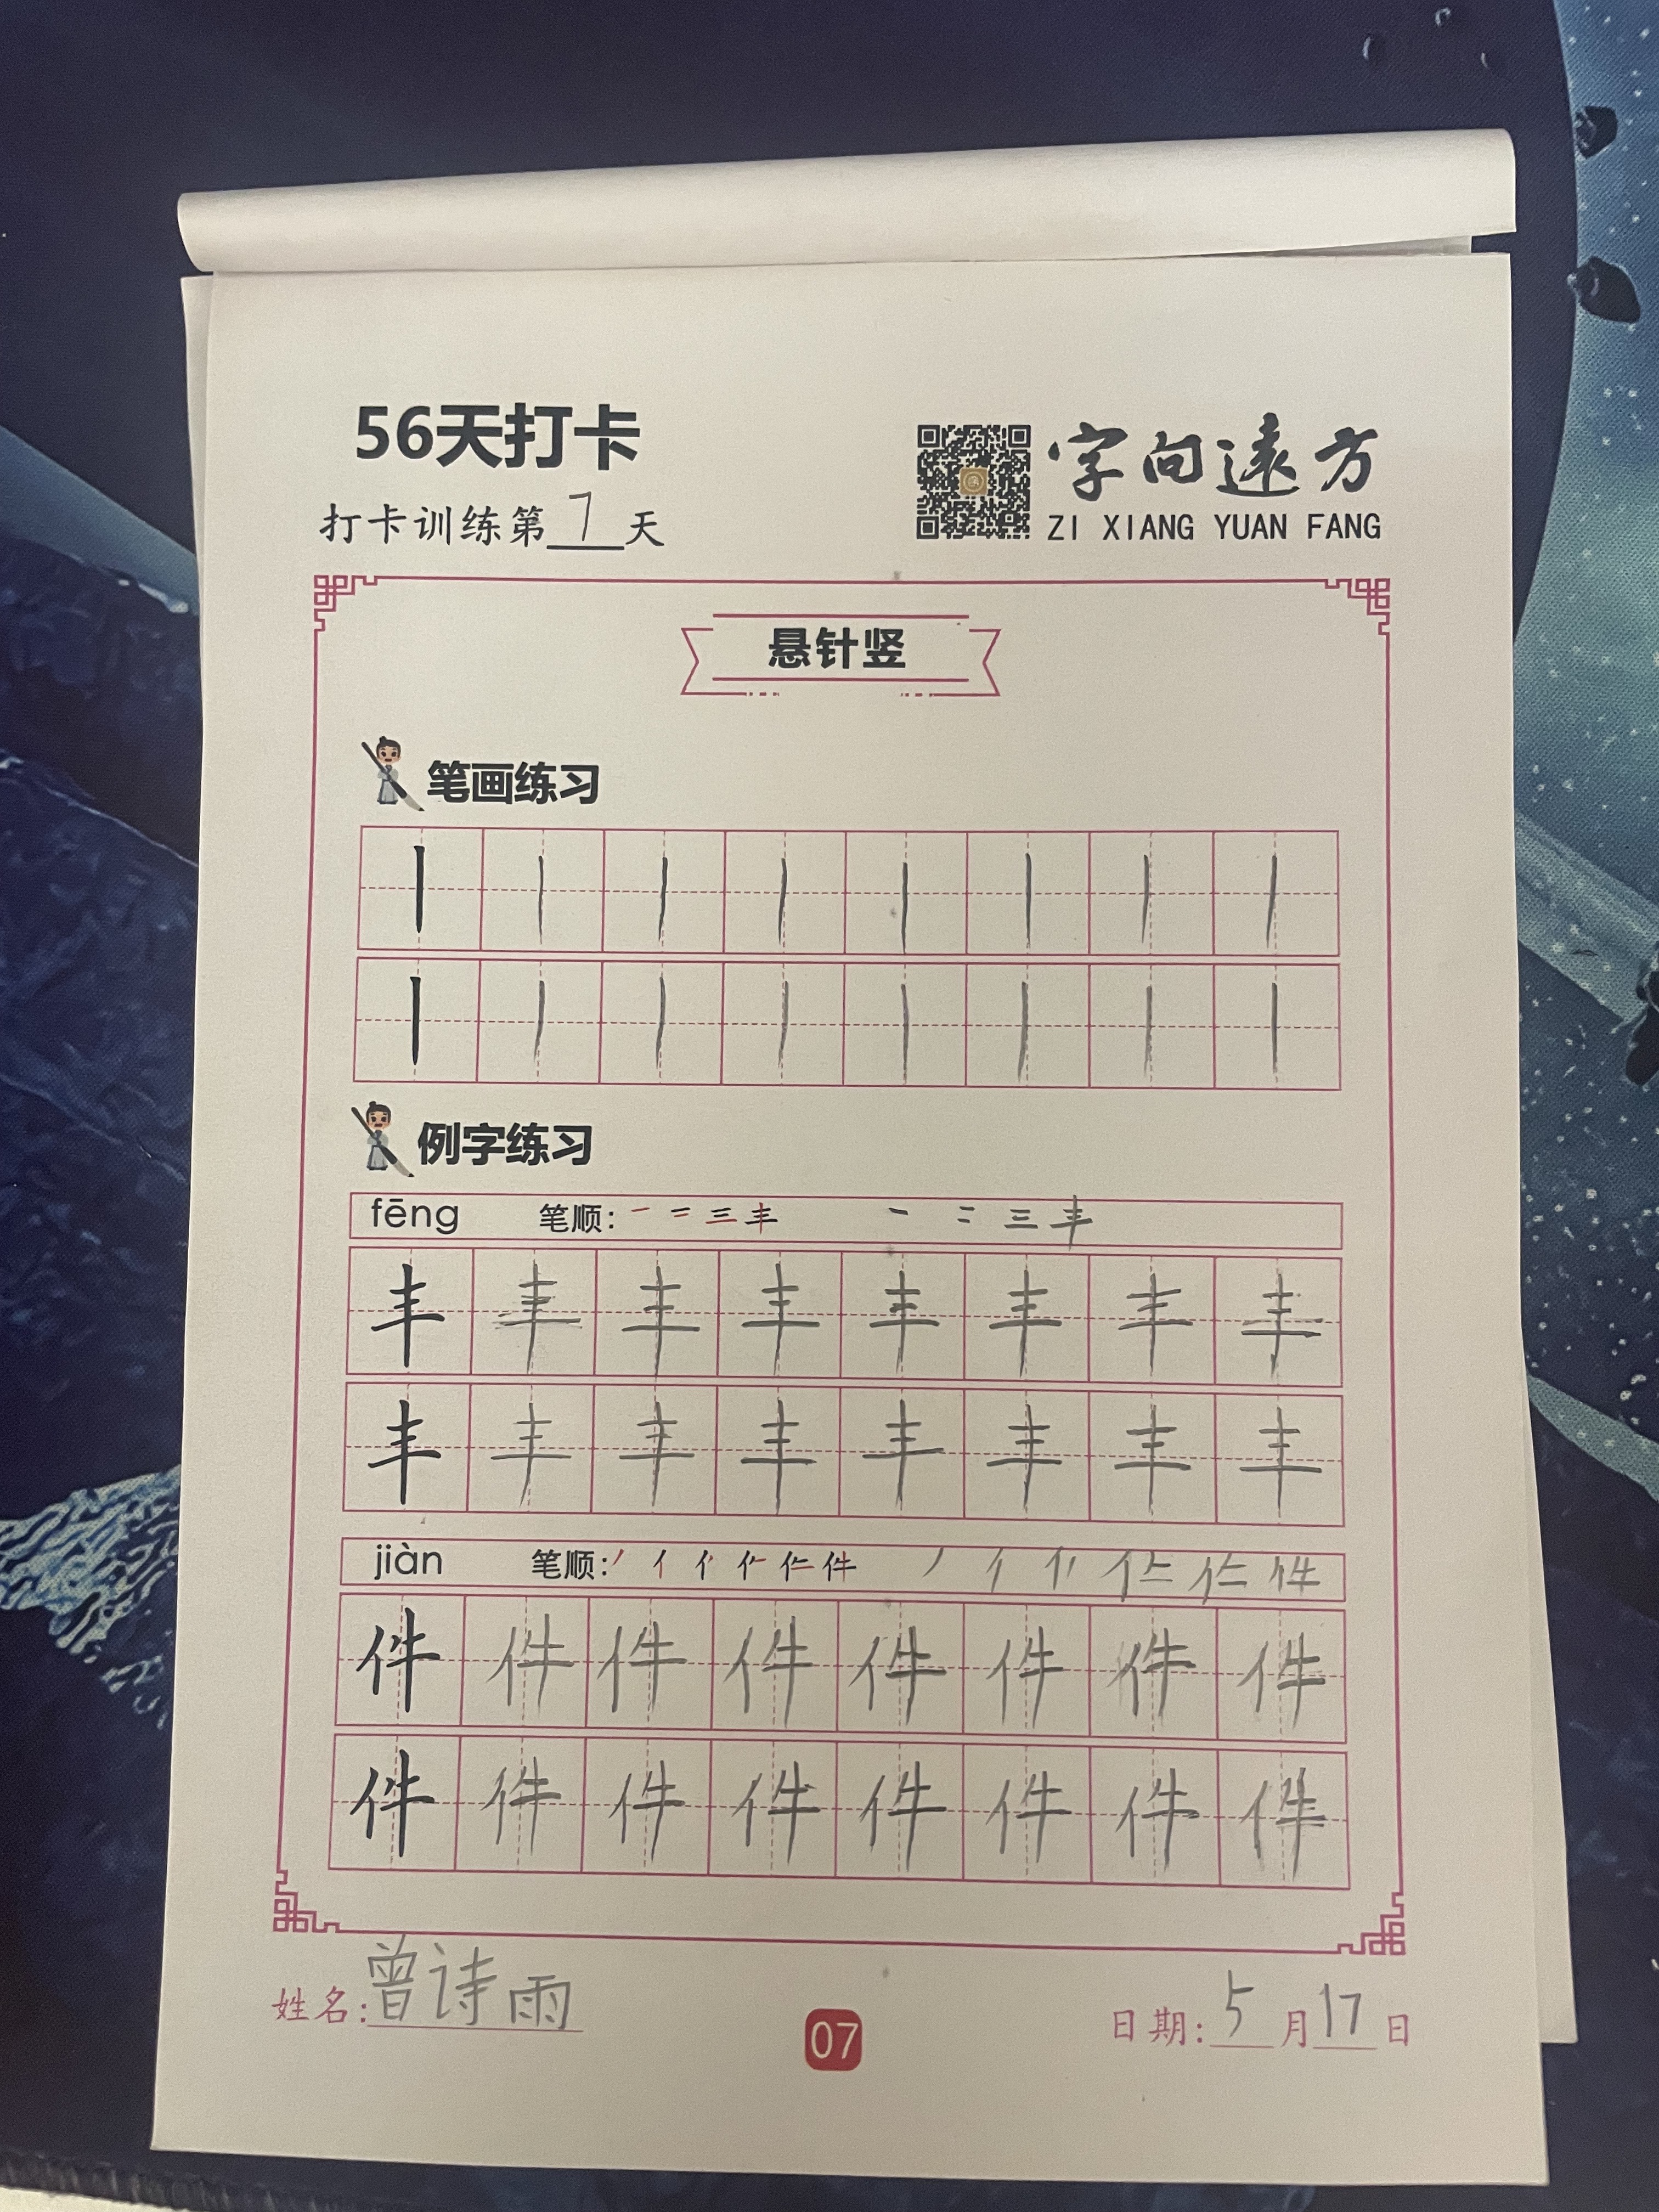 56天打卡
打卡训练第7天
字向遠方
ZI XIANG YUAN FANG
悬针竖
笔画练习
丨 丨 丨 丨 丨 丨 丨 丨
丨 丨 丨 丨 丨 丨 丨 丨
例字练习
fēng 笔顺: 一 二 三 丰 一 二 三 丰
丰 丰 丰 丰 丰 丰 丰 丰
丰 丰 丰 丰 丰 丰 丰 丰
jiàn 笔顺: 丿 亻 件 件
件 件 件 件 件 件 件 件
件 件 件 件 件 件 件 件
姓名:曾诗雨
07
日期:5月17日